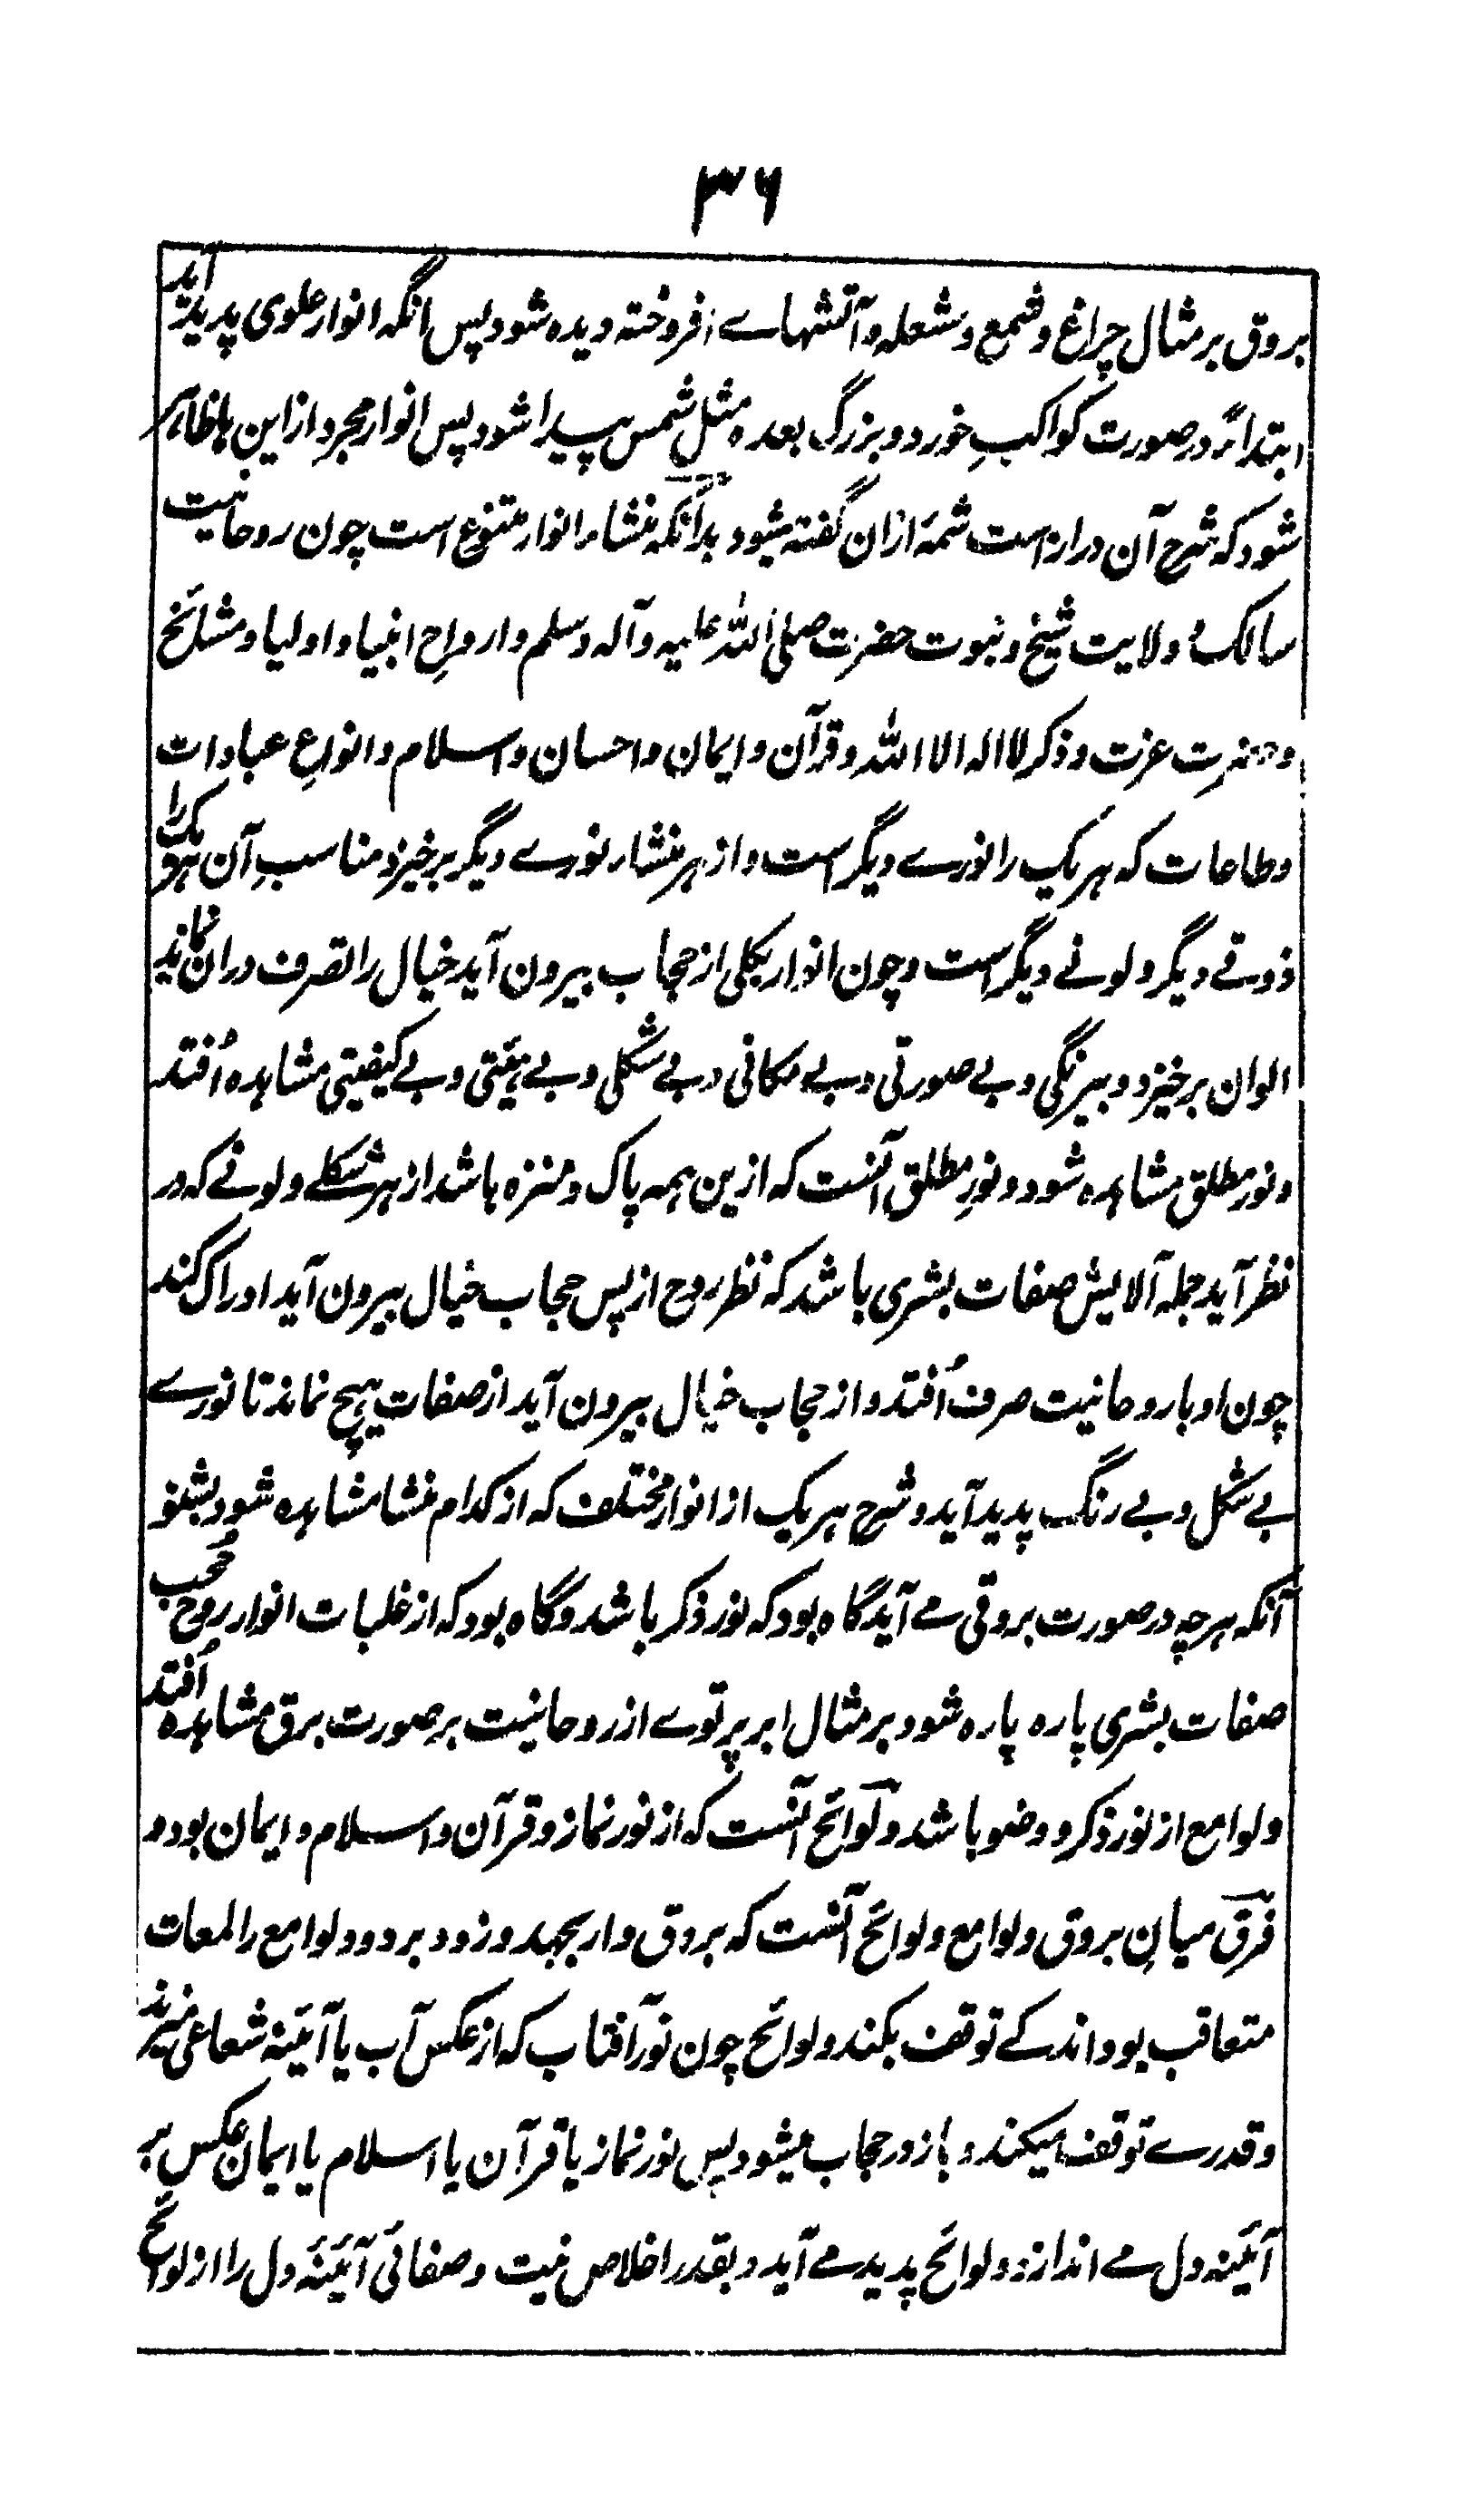 ۳۶
بروق بر مثال چراغ و شمع و مشعله و آتشهاے افروختہ دیده شود پس انگہ انوار علوی پدید آید
ابتداءً در صورت کواکبِ خورد و بزرگ بعده مثل شمس پیدا شود پس انوار مجرد ازاین ها ظاہر
شود کہ شرح آن دراز است شمۂ ازان گفتہ میشود بدآنکہ منشاء انوار متنوع است چون روحانیت
سالک و ولایت شیخ و نبوت حضرت صلی اللہ علیہ وآلہ وسلم و ارواحِ انبیا و اولیا و مشائخ
و حضرتِ عزت و ذکر لا الہ الا اللہ و قرآن و ایمان و احسان و اسلام و انواعِ عبادات
و طاعات کہ ہر یک را نورے دیگر است و از ہر منشاء نورے دیگر بر خیزد مناسبِ آن و ہر یک را
ذوقے دیگر و لونے دیگر است و چون انوار بکلی از حجاب بیرون آید خیال را تصرف دران نماند
الوان بر خیزد و بیرنگی و بے صورتی و بے مکانی و بے شکلی و بے ہیئتی و بے کیفیتی مشاہده اُفتد
و نور مطلق مشاہده شود و نورِ مطلق آنست کہ ازین ہمہ پاک و منزه باشد از ہر شکلے و لونے کہ در
نظر آید جملہ آلایش صفات بشری باشد کہ نظر روح از پس حجاب خیال بیرون آید ادراک کند
چون او با روحانیت صرف اُفتد و از حجاب خیال بیرون آید از صفات ہیچ نماند تا نورے
بے شکل و بے رنگ پدید آید و شرح ہر یک از انوار مختلف کہ از کدام منشا مشاہده شود بشنو
آنکہ ہر چہ در صورت بروقی مے آید گاه بود کہ نور ذکر باشد و گاه بود کہ از غلبات انوار روح حُجب
صفات بشری پاره پاره شود بر مثال ابر پرتوے از روحانیت بر صورت برق مشاہده اُفتد
و لوامع از نور ذکر و وضو باشد و لوائح آنست کہ از نور نماز و قرآن و اسلام و ایمان بود و
فرق میانِ بروق و لوامع و لوائح آنست کہ بروق وار بجہد و زود برود و لوامع را لمعات
متعاقب بود اندکے توقف بکند و لوائح چون نور آفتاب کہ از عکس آب یا آئینہ شعاعی میزند
و قدرے توقف میکند و باز در حجاب میشود پس نور نماز یا قرآن یا اسلام یا ایمان عکس بر
آئینہ دل مے اندازد و لوائح پدید مے آید و بقدر اخلاص نیت و صفائی آئینۂ دل را از لوائح